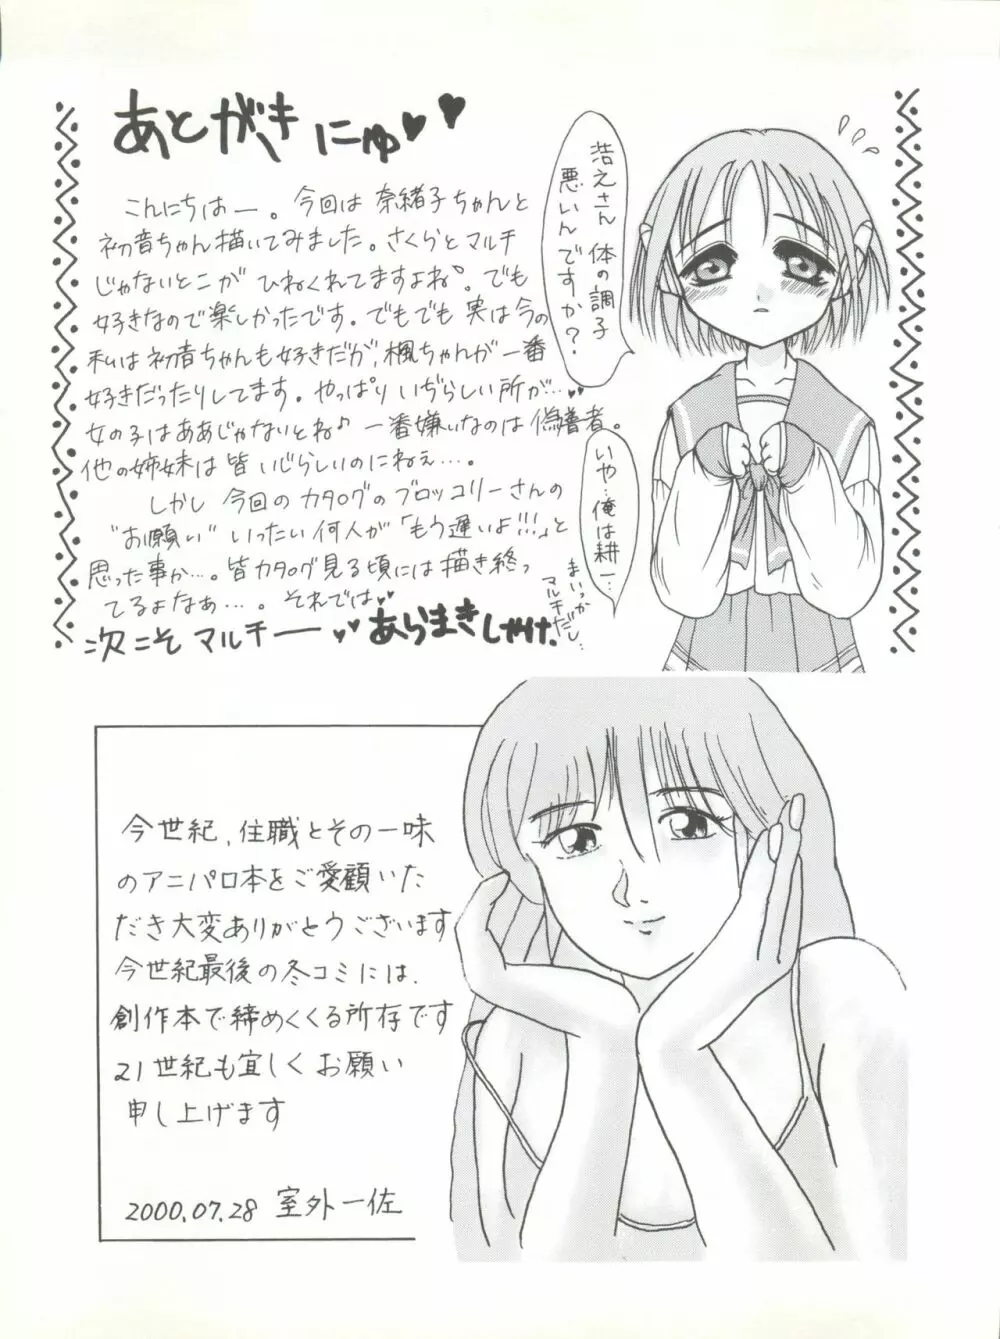 あとがきにゅ♥♥
こんにちはー。今回は奈緒子ちゃんと
初音ちゃん描いてみました。さくらとマルチ
じゃないとこが ひねくれてますよね。でも
好きなので楽しかったです。でもでも 実は今の
私は初音ちゃんも好きだが、楓ちゃんが一番
好きだったりしてます。やっぱり いぢらしい所が…♥♥
女の子はああじゃないとね♪ 一番嫌いなのは偽善者。
他の姉妹は皆いじらしいのにねぇ…。
しかし 今回のカタログのブロッコリーさんの
"お願い" いったい何人が「もう遅いよ!!!」と
思った事か…。皆カタログ見る頃には描き終っ
てるよなぁ…。それでは♥♥
次こそ マルチー♥♥ あらまきしゃけ.
浩之さん 体の調子
悪いんですか?
いや…俺は耕一…
まいっか
マルチだし…
今世紀、住職とその一味
のアニパロ本をご愛顧いた
だき大変ありがとうございます
今世紀最後の冬コミには、
創作本で締めくくる所存です
21世紀も宜しくお願い
申し上げます
2000.07.28 室外一佐